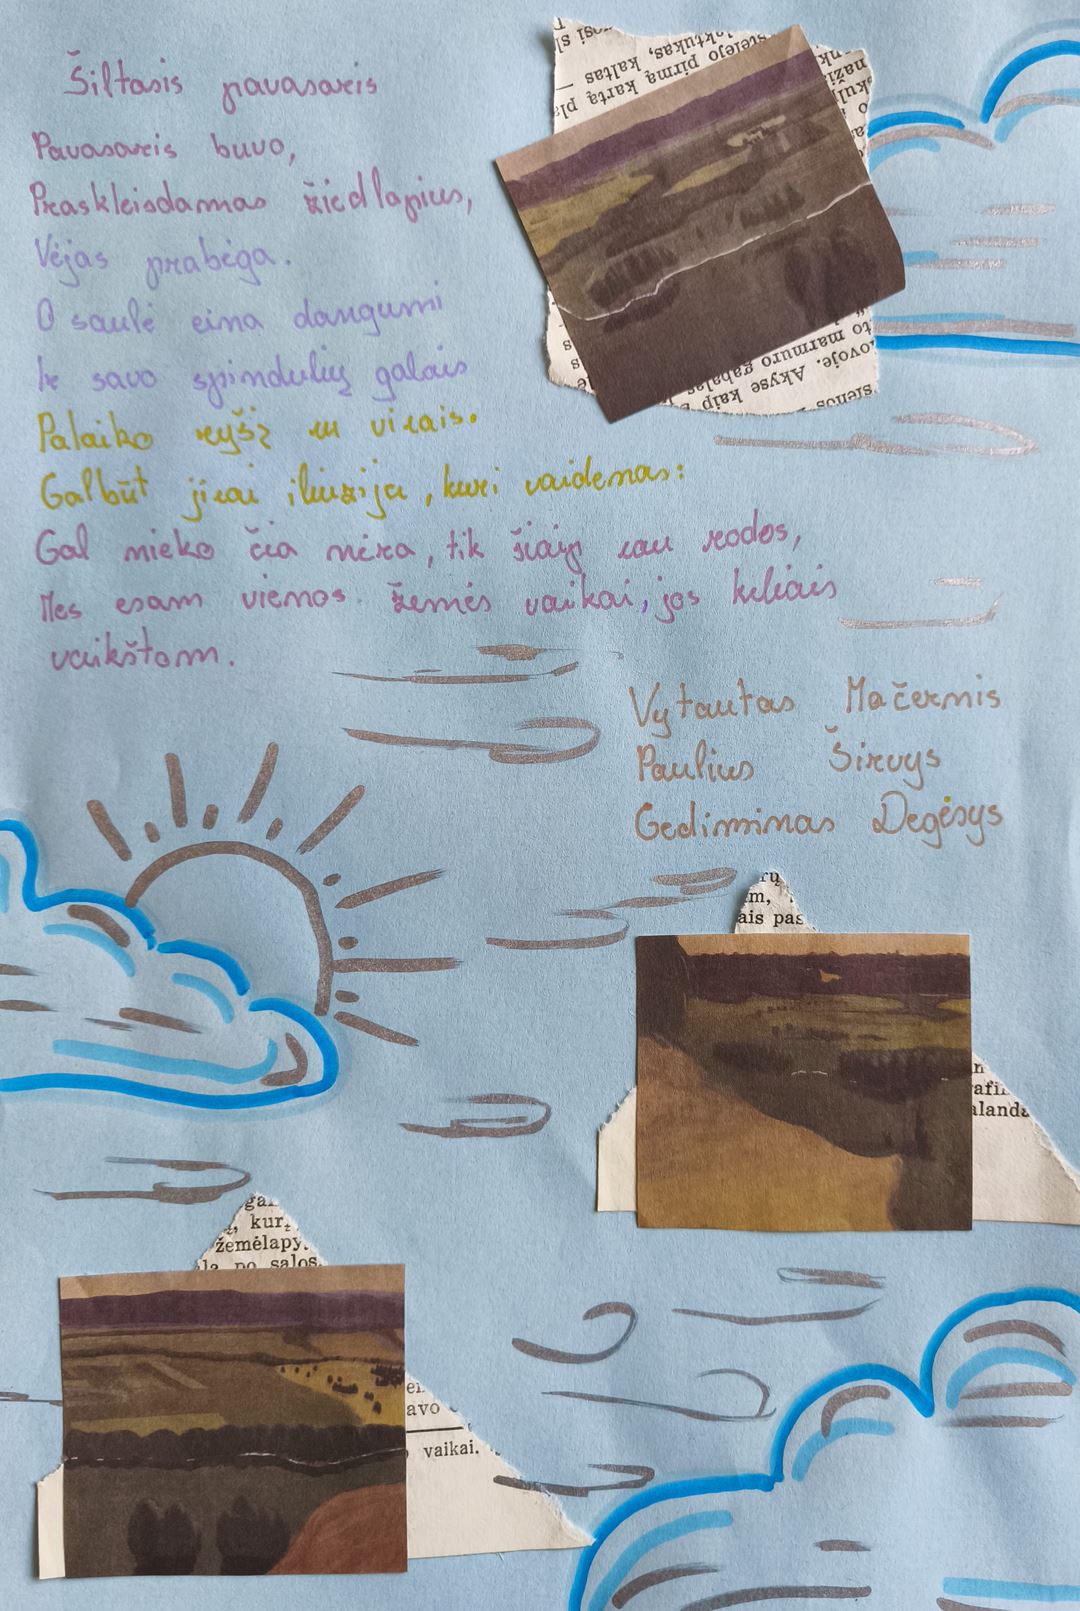 Šiltasis pavasaris
Pavasaris buvo,
Praskleisdamas žiedlapius,
Vėjas prabėga.
O saulė eina dangumi
Ir savo spindulių galais
Palaiko ryšį su virais.
Galbūt jirai iliuzija, kuri vaidenas:
Gal nieko čia nėra, tik šiaip sau rodos,
Mes esam vienos žemės vaikai, jos keliais
vaikštom.
Vytautas Mačernis
Paulius Širvys
Gediminas Degėsys
kaltas —
pirmą kartą
to marmuro gabalas
ovoje. Akyse kaip
rų
m,
ais pas
alanda
kur
žemėlapy
la po salos
avo
vaikai.